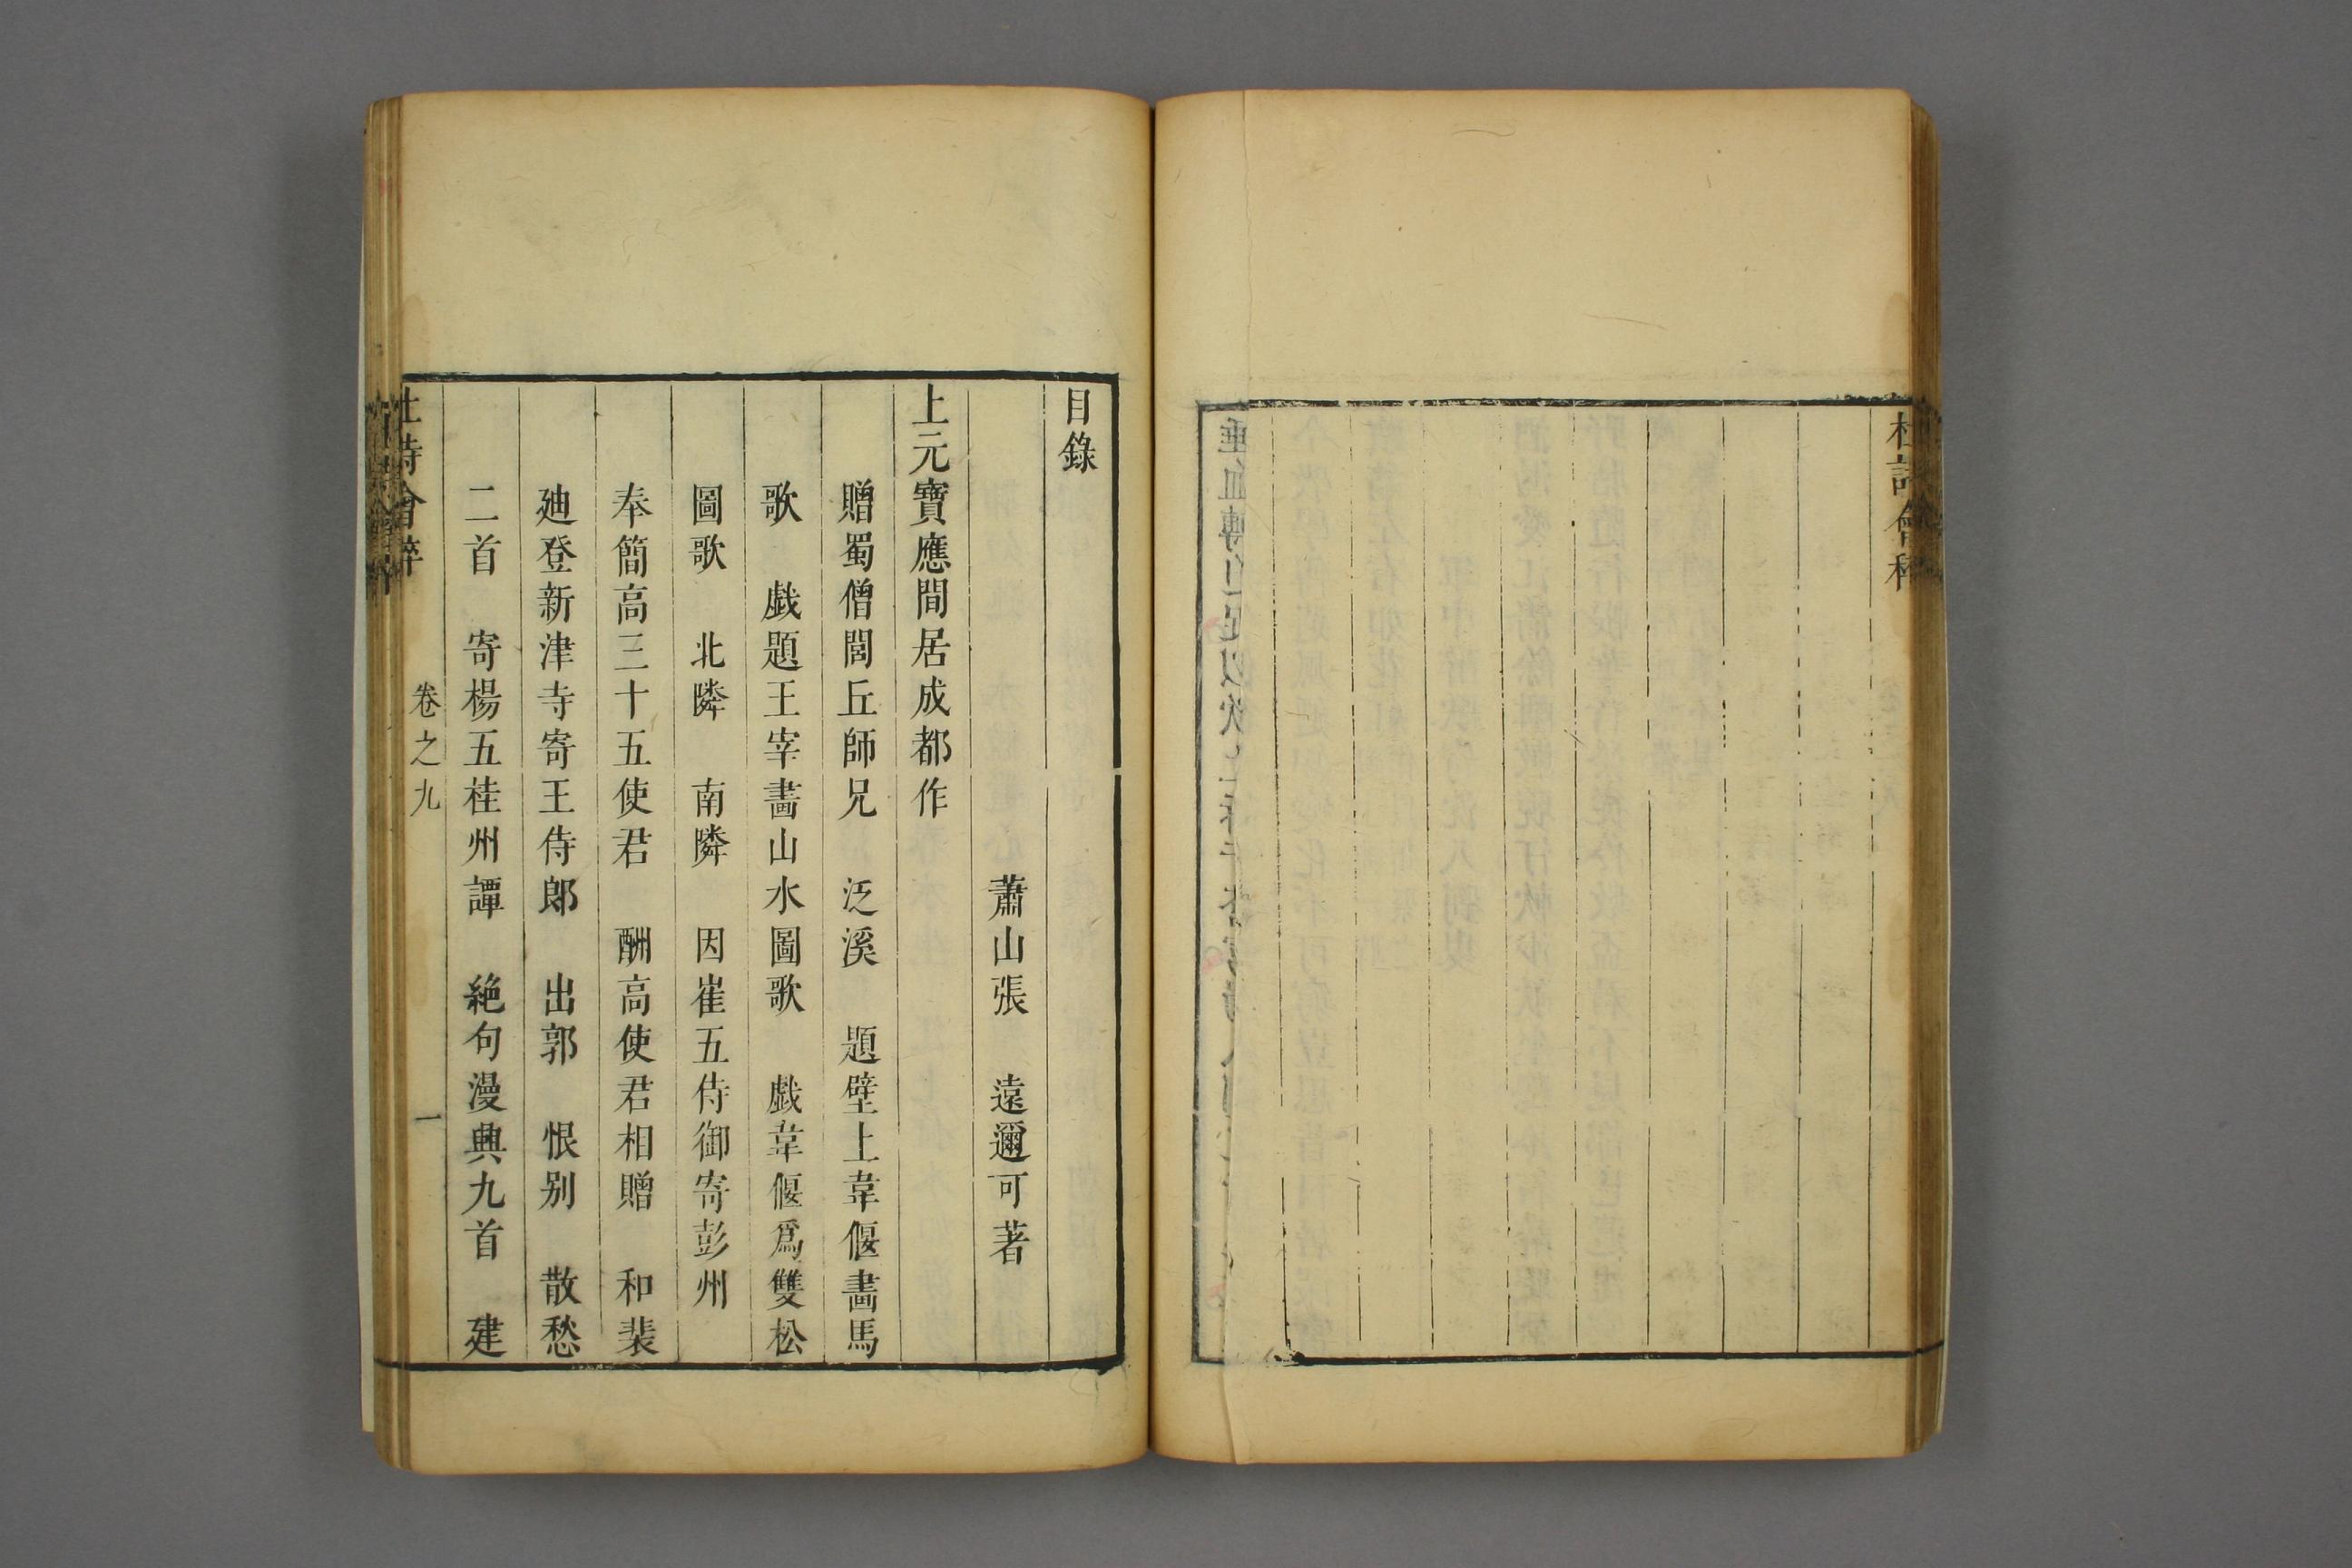 杜詩會稡
目錄
蕭山張 遠邇可著
上元寶應間居成都作
贈蜀僧閭丘師兄 泛溪 題壁上韋偃畫馬
歌 戲題王宰畫山水圖歌 戲韋偃爲雙松
圖歌 北隣 南隣 因崔五侍御寄彭州
奉簡高三十五使君 酬高使君相贈 和裴
廸登新津寺寄王侍郎 出郭 恨别 散愁
二首 寄楊五桂州譚 絶句漫興九首 建
杜詩會稡 卷之九 一